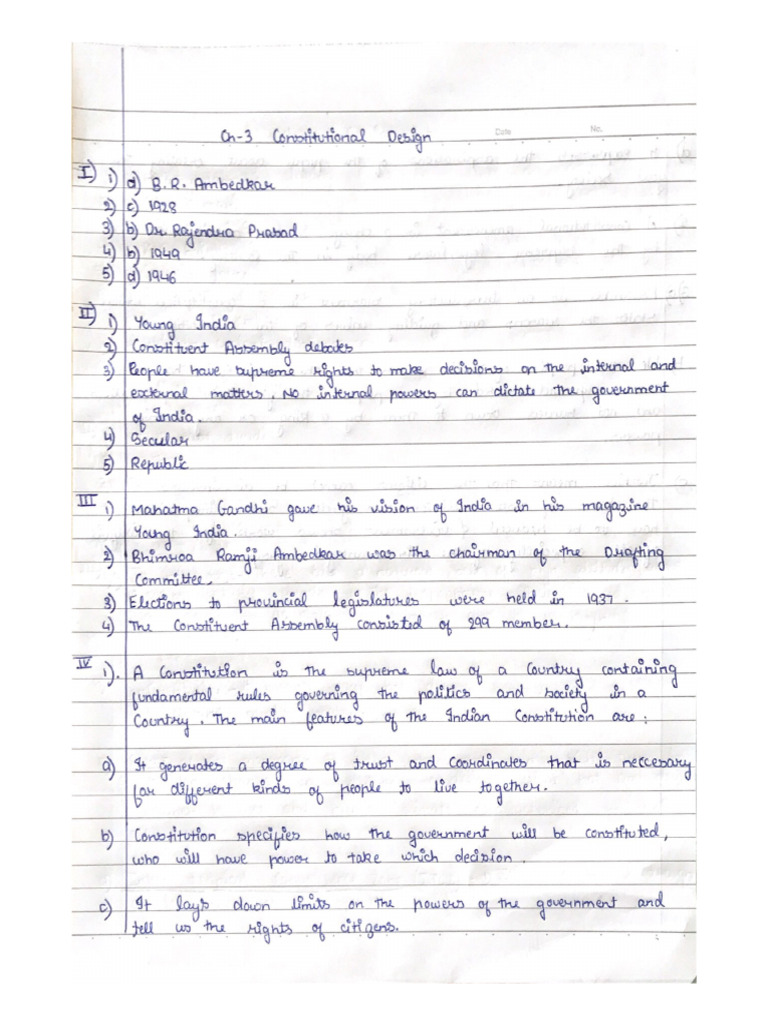 Ch-3 Constitutional Design
Date No.
I) 1) d) B.R. Ambedkar
2) c) 1928
3) b) Dr. Rajendra Prasad
4) b) 1949
5) d) 1946
II) 1) Young India
2) Constituent Assembly debates
3) People have supreme rights to make decisions on the internal and
external matters. No internal powers can dictate the government
of India.
4) Secular
5) Republic
III 1) Mahatma Gandhi gave his vision of India in his magazine
Young India.
2) Bhimroa Ramji Ambedkar was the chairman of the Drafting
Committee.
3) Elections to provincial legislatures were held in 1937.
4) The Constituent Assembly consisted of 299 member.
IV 1). A Constitution is the supreme law of a Country containing
fundamental rules governing the politics and society in a
Country. The main features of the Indian Constitution are:
a) It generates a degree of trust and coordinates that is neccesary
for different kinds of people to live together.
b) Constitution specifies how the government will be constituted,
who will have power to take which decision.
c) It lays down limits on the powers of the government and
tell us the rights of citizens.